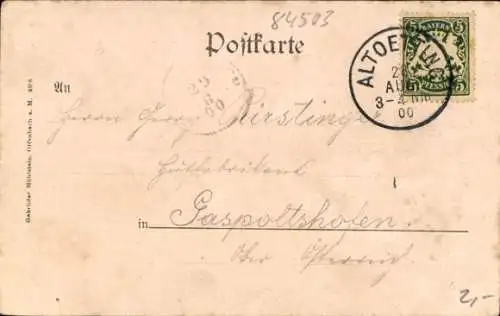 84503
Postkarte
ALTOETTING
AUG
3-4 NM
00
BAYERN
5 5
PFENNIG
An
Herrn Georg Kirstinger
Hutfabrikant
in Gaspoltshofen
Ober Österreich
Gebrüder Mühlstein, Offenbach a. M.
2,-